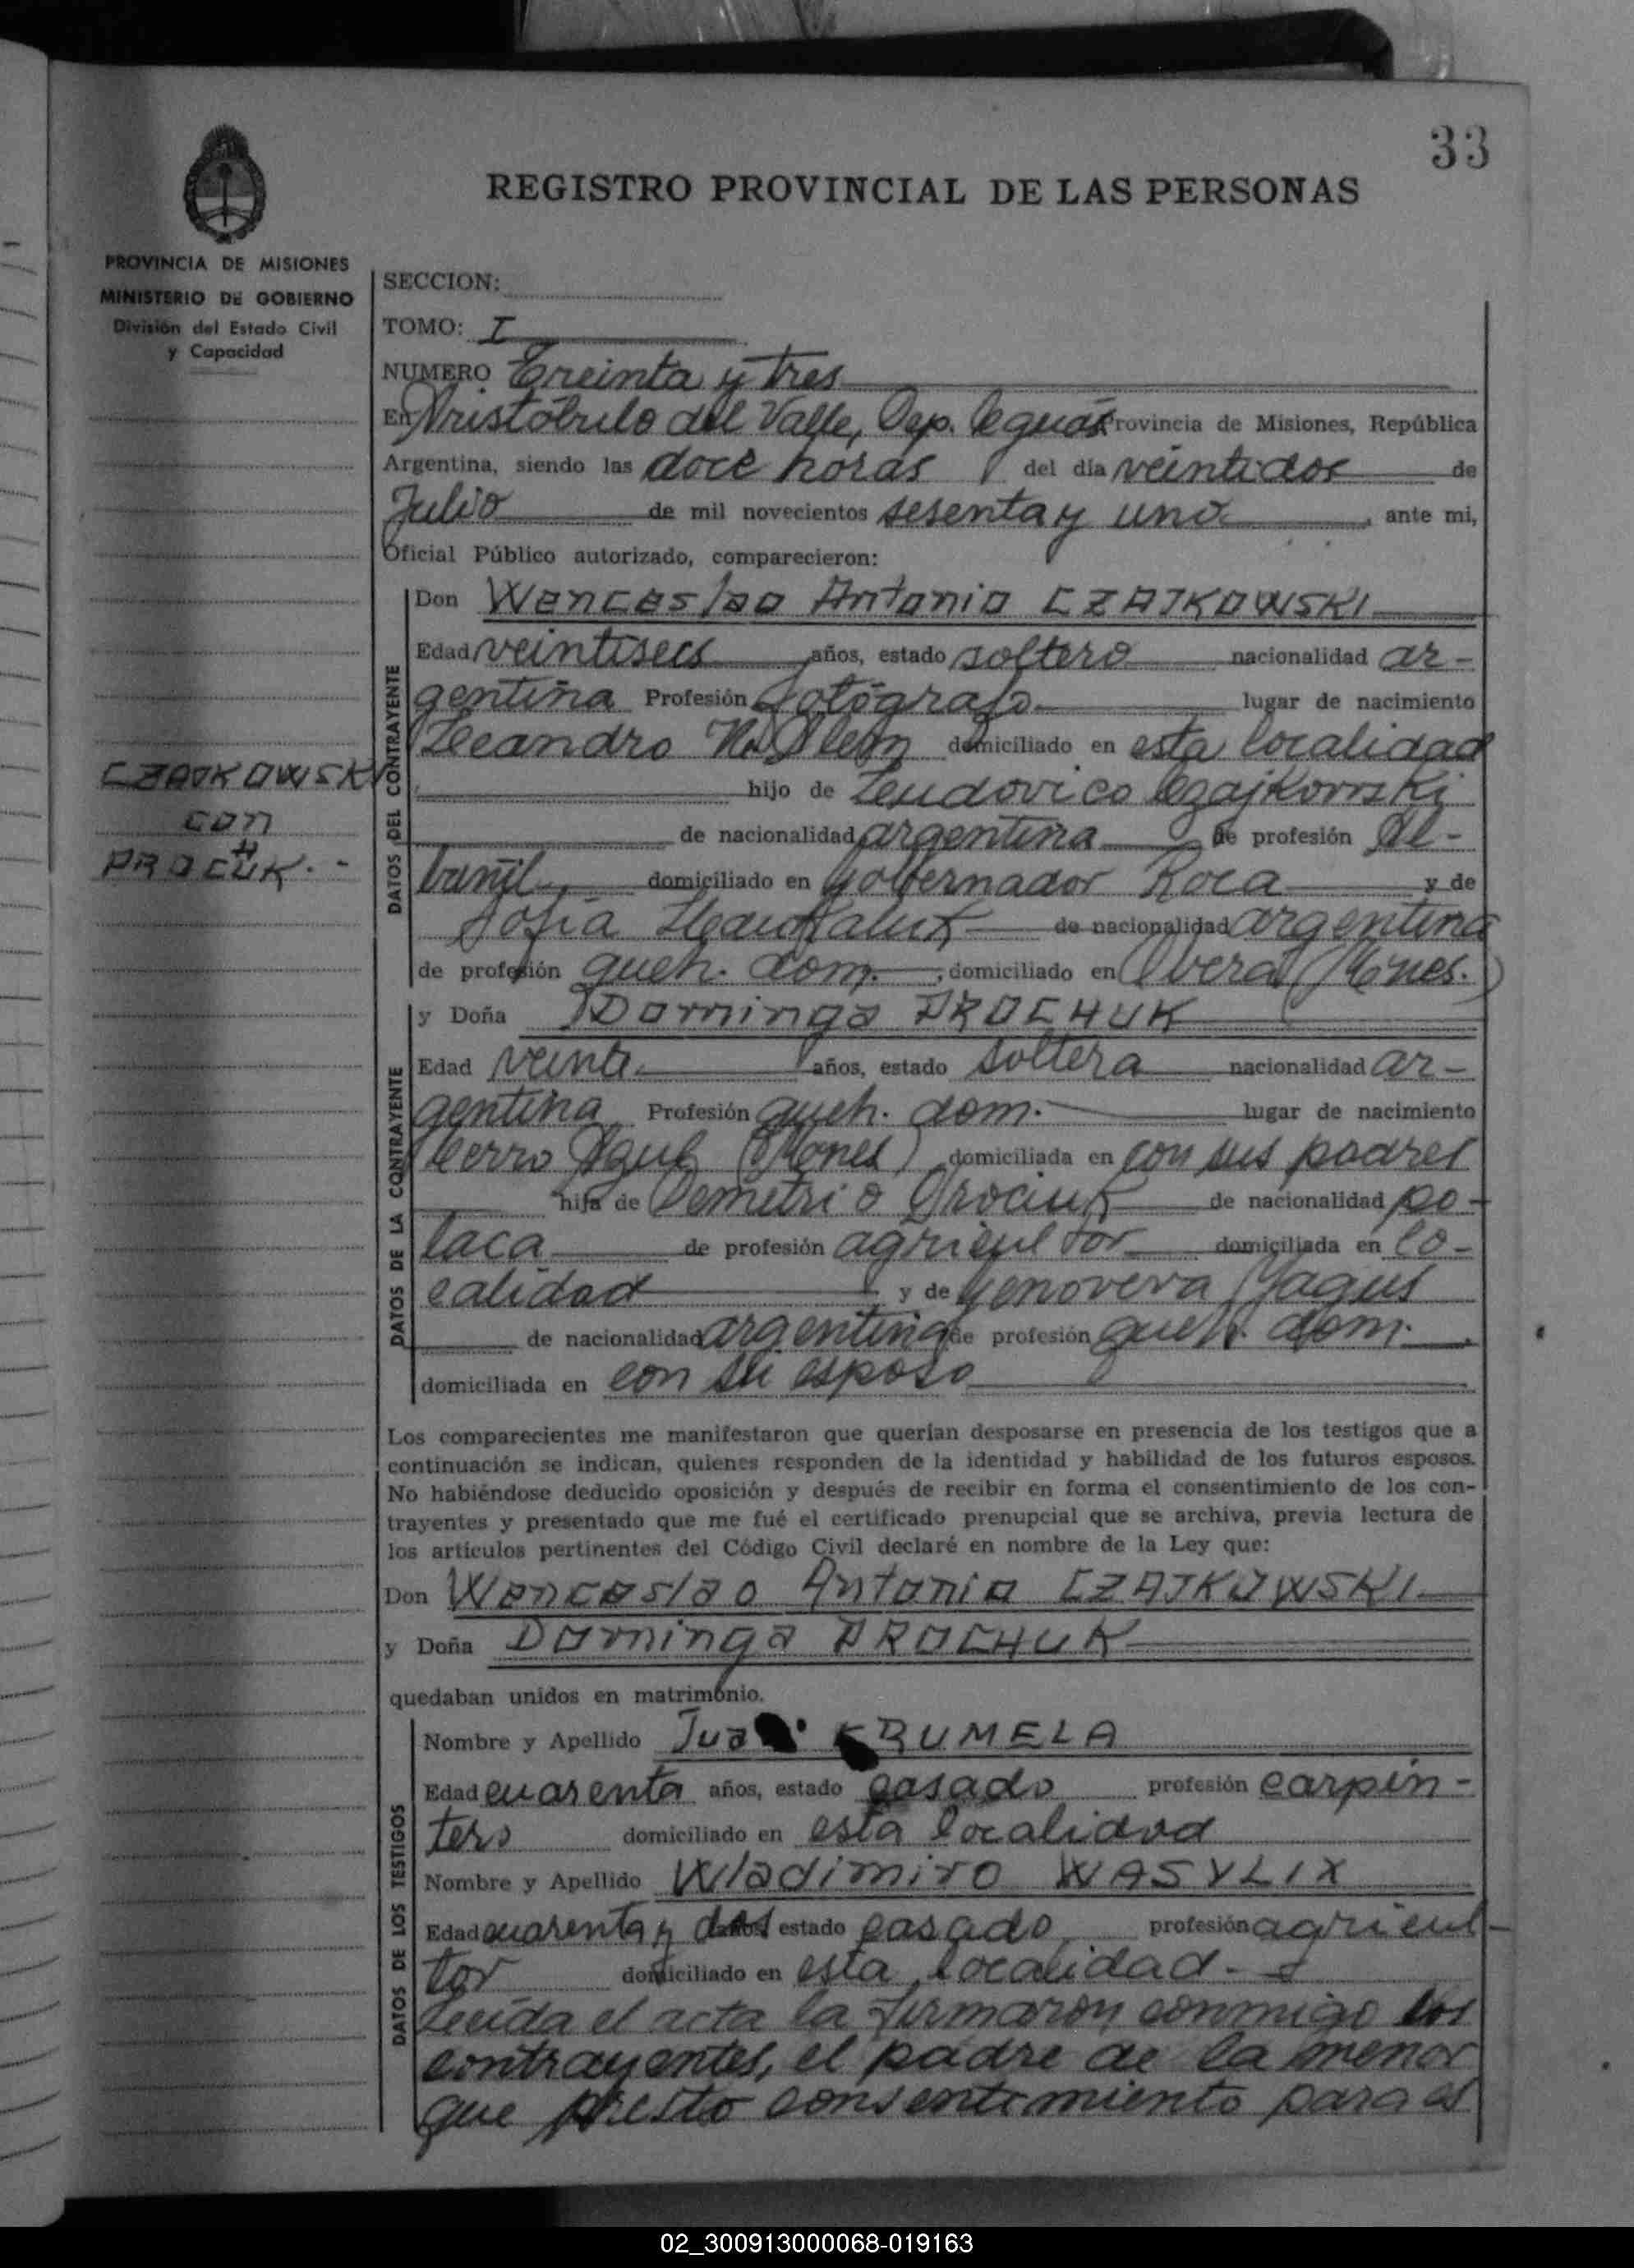 33
REGISTRO PROVINCIAL DE LAS PERSONAS
PROVINCIA DE MISIONES
MINISTERIO DE GOBIERNO
División del Estado Civil
y Capacidad
CZAJKOWSKI
con
PROCHUK.-
SECCION:
TOMO: I
NUMERO Treinta y tres
En Aristóbulo del Valle, Dep. Provincia de Misiones, República
Argentina, siendo las doce horas del día veintidos de
Julio de mil novecientos sesenta y uno, ante mi,
Oficial Público autorizado, comparecieron:
DATOS DEL CONTRAYENTE
Don Wenceslao Antonio CZAJKOWSKI
Edad veintiseis años, estado soltero nacionalidad ar-
gentina Profesión fotógrafo lugar de nacimiento
Leandro N. Alem domiciliado en esta localidad
hijo de Leudovico Czajkowski
de nacionalidad argentina de profesión Al-
bañil, domiciliado en Gobernador Roca y de
Sofía de nacionalidad argentina
de profesión queh. dom. ; domiciliado en Oberá (Mnes.)
DATOS DE LA CONTRAYENTE
y Doña Dominga PROCHUK
Edad veinte años, estado soltera nacionalidad ar-
gentina Profesión queh. dom. lugar de nacimiento
Cerro Azul (Mnes) domiciliada en con sus padres
hija de Demetrio Prociuk de nacionalidad po-
laca de profesión agricultor domiciliada en lo-
calidad y de Genoveva Yagus
de nacionalidad argentina de profesión queh. dom.
domiciliada en con su esposo
Los comparecientes me manifestaron que querían desposarse en presencia de los testigos que a
continuación se indican, quienes responden de la identidad y habilidad de los futuros esposos.
No habiéndose deducido oposición y después de recibir en forma el consentimiento de los con-
trayentes y presentado que me fué el certificado prenupcial que se archiva, previa lectura de
los artículos pertinentes del Código Civil declaré en nombre de la Ley que:
Don Wenceslao Antonio CZAJKOWSKI
y Doña Dominga PROCHUK
quedaban unidos en matrimonio.
DATOS DE LOS TESTIGOS
Nombre y Apellido Juan KRUMELA
Edad cuarenta años, estado casado profesión carpin-
tero domiciliado en esta localidad
Nombre y Apellido Wladimiro WASYLIK
Edad cuarenta y dos años, estado casado profesión agricul-
tor domiciliado en esta localidad.-
Leída el acta la firmaron conmigo los
contrayentes, el padre de la menor
que presto consentimiento para el
02_300913000068-019163